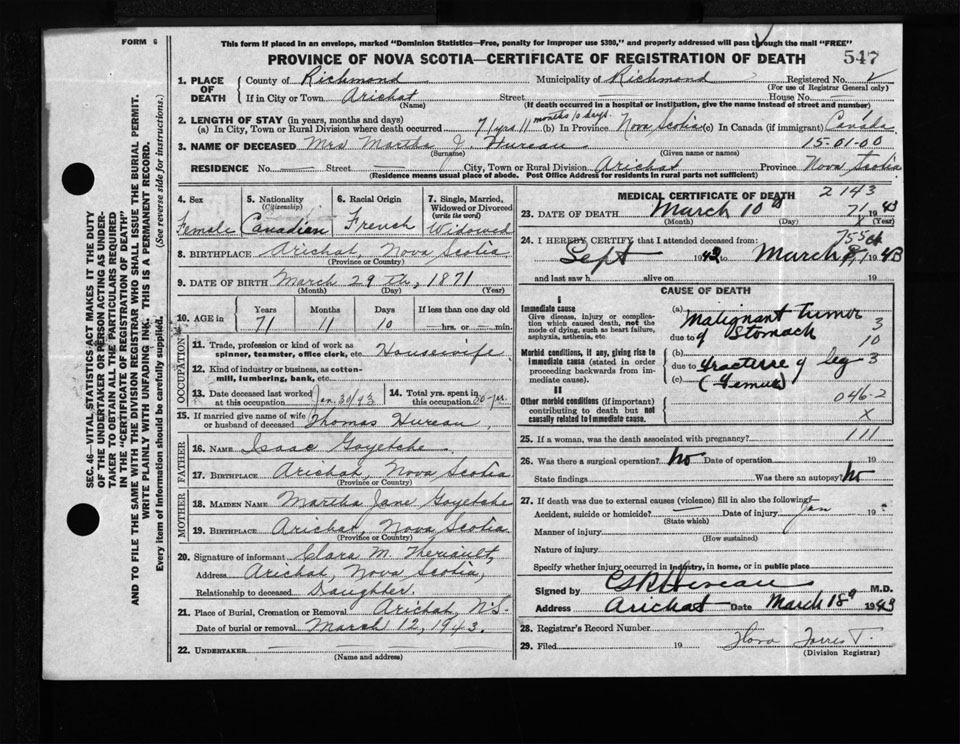 FORM 6
This form if placed in an envelope, marked "Dominion Statistics—Free, penalty for improper use $300," and properly addressed will pass through the mail "FREE"
PROVINCE OF NOVA SCOTIA—CERTIFICATE OF REGISTRATION OF DEATH
547
1. PLACE OF DEATH
County of Richmond Municipality of Richmond Registered No.
(For use of Registrar General only)
If in City or Town Arichat Street House No.
(Name) (If death occurred in a hospital or institution, give the name instead of street and number)
2. LENGTH OF STAY (in years, months and days)
(a) In City, Town or Rural Division where death occurred 71 yrs 11 months 10 days. (b) In Province Nova Scotia (c) In Canada (if immigrant) Canada
3. NAME OF DECEASED Mrs Martha J. Hureau 15-01-00
(Surname) (Given name or names)
RESIDENCE No. Street City, Town or Rural Division Arichat Province Nova Scotia
(Residence means usual place of abode. Post Office Address for residents in rural parts not sufficient)
4. Sex Female
5. Nationality (Citizenship) Canadian
6. Racial Origin French
7. Single, Married, Widowed or Divorced (write the word) Widowed
8. BIRTHPLACE Arichat, Nova Scotia
(Province or Country)
9. DATE OF BIRTH March 29th, 1871
(Month) (Day) (Year)
10. AGE in Years Months Days If less than one day old
71 11 10 hrs. or min.
OCCUPATION
11. Trade, profession or kind of work as spinner, teamster, office clerk, etc. Housewife
12. Kind of industry or business, as cotton-mill, lumbering, bank, etc.
13. Date deceased last worked at this occupation Jan. 30/43
14. Total yrs. spent in this occupation 50 yrs.
15. If married give name of wife or husband of deceased Thomas Hureau
FATHER
16. NAME Isaac Goyetche
17. BIRTHPLACE Arichat, Nova Scotia
(Province or Country)
MOTHER
18. MAIDEN NAME Martha Jane Goyetche
19. BIRTHPLACE Arichat, Nova Scotia
(Province or Country)
20. Signature of informant Clara M. Theriault,
Address Arichat, Nova Scotia,
Relationship to deceased Daughter.
21. Place of Burial, Cremation or Removal Arichat, N.S.
Date of burial or removal March 12, 1943.
22. UNDERTAKER
(Name and address)
MEDICAL CERTIFICATE OF DEATH
2143
23. DATE OF DEATH March 10 1943
(Month) (Day) (Year)
24. I HEREBY CERTIFY that I attended deceased from:
Sept 1942 to March 1943
and last saw h alive on 19
CAUSE OF DEATH
I
Immediate cause
Give disease, injury or complication which caused death, not the mode of dying, such as heart failure, asphyxia, asthenia, etc.
Morbid conditions, if any, giving rise to immediate cause (stated in order proceeding backwards from immediate cause).
II
Other morbid conditions (if important) contributing to death but not causally related to immediate cause.
(a) Malignant Tumor
due to of Stomach
3
10
(b)
due to fracture of leg 3
(c) (Femur)
046-2
X
25. If a woman, was the death associated with pregnancy? 111
26. Was there a surgical operation? No Date of operation 19
State findings Was there an autopsy? No
27. If death was due to external causes (violence) fill in also the following:
Accident, suicide or homicide? Date of injury Jan 19
(State which)
Manner of injury
(How sustained)
Nature of injury
Specify whether injury occurred in industry, in home, or in public place
Signed by M.D.
Address Arichat Date March 18 1943
28. Registrar's Record Number
29. Filed 19 Flora
(Division Registrar)
SEC. 46—VITAL STATISTICS ACT MAKES IT THE DUTY
OF THE UNDERTAKER OR PERSON ACTING AS UNDER-
TAKER TO OBTAIN ALL THE PARTICULARS REQUIRED
IN THE "CERTIFICATE OF REGISTRATION OF DEATH"
AND TO FILE THE SAME WITH THE DIVISION REGISTRAR WHO SHALL ISSUE THE BURIAL PERMIT.
WRITE PLAINLY WITH UNFADING INK. THIS IS A PERMANENT RECORD.
Every item of Information should be carefully supplied. (See reverse side for instructions.)